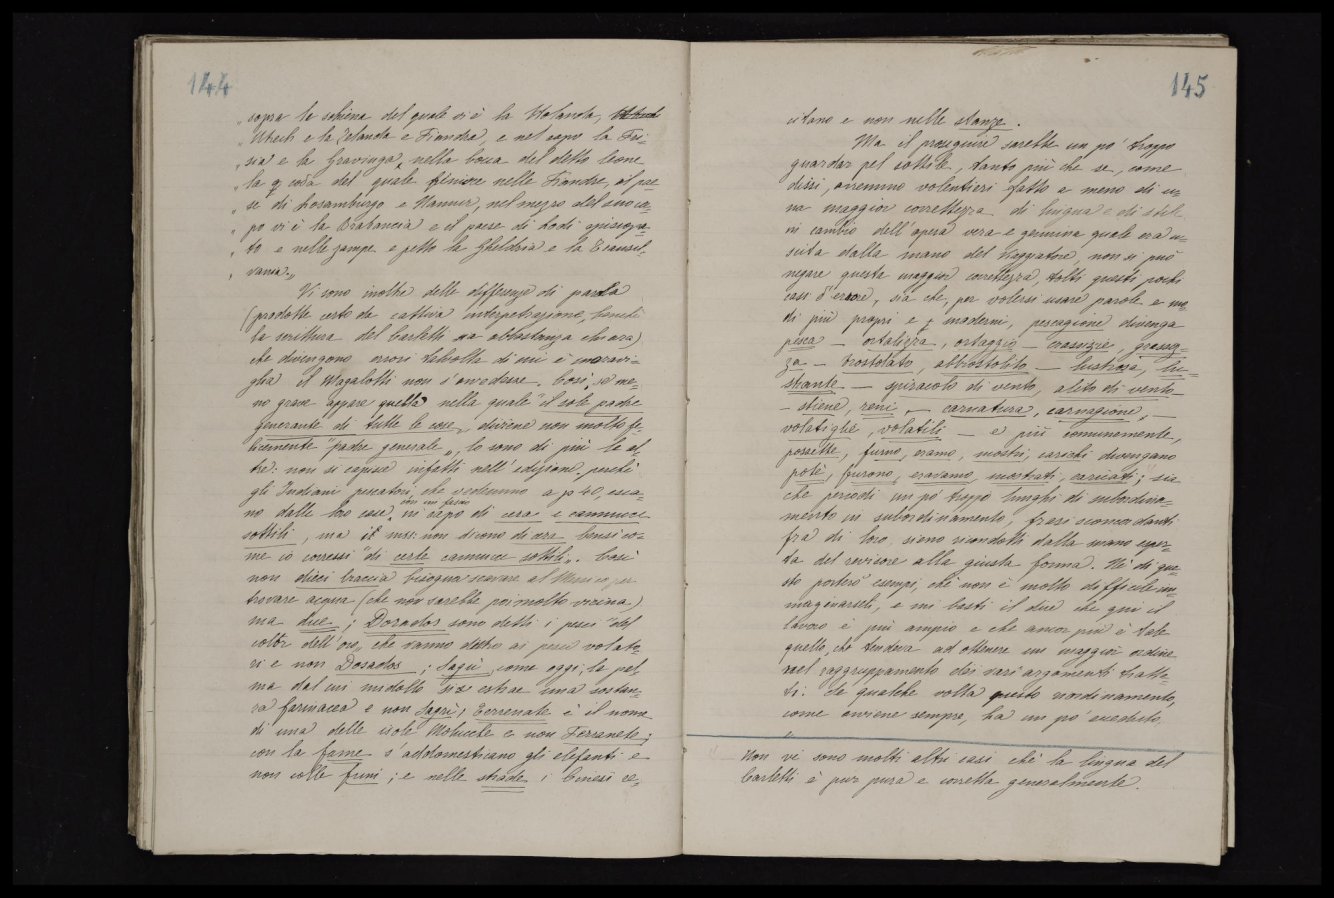 144
„ sopra la schiena del quale vi è la Holanda,
„ Utrech e la Zelanda e Fiandra, e nel capo la Fri=
„ sia e la Gravinga, nella bocca del detto leone
„ la q. coda del quale finisce nelle Fiandre, il pae
„ se di Lusamburgo e Namur, nel mezzo del suo ca=
„ po vi è la Brabancia e il paese di Lodi episcopa
„ to e nelle zampe e petto la Gheldria e la Transil=
„ vania.„
Vi sono inoltre delle differenze di parola
(prodotte certo da cattiva interpetrazione, benchè
la scrittura del Carletti sia abbastanza chiara)
che divengono errori talvolta di cui è maravi=
glia il Magalotti non s'avvedesse. Così, se me=
no grave appare quella nella quale "il sole padre
generante di tutte le cose„ diviene non molto fe=
licemente "padre generale„, lo sono di più le al=
tre: non si capisce infatti nell'edizione, perchè
gli Indiani pescatori, che vedemmo a p 40, esca=
no dalle loro case, con un fascio in capo di cera e cannucce
sottili, ma il mss: non dicono di cera bensì co=
me io corressi "di certe cannucce sottili„. Così
non dieci braccia bisogna scavare al Messico, per
trovare acqua (che non sarebbe poi molto vicina)
ma due; Dorados sono detti i pesci "del
color dell'oro„ che vanno dietro ai pesci volato=
ri e non Dosados; Sagù come oggi, la pal=
ma dal cui midollo si estrae una sostan=
za farinacea e non Sagri; Terrenate è il nome
di una delle isole Molucche e non Ferranete;
con la fame s'addomesticano gli elefanti e
non colle funi; e nelle strade i Cinesi re=
145
citano e non nelle stanze.
Ma il proseguire sarebbe un po' troppo
guardar pel sottile, tanto più che se, come
dissi, avremmo volentieri fatto a meno di u=
na maggior correttezza di lingua e di stile
in cambio dell'opera vera e genuina quale era u=
scita dalla mano del viaggiatore, non si può
negare questa maggior correttezza, tolti questi pochi
casi d'errore, sia che, per volersi usare parole e mo=
di più propri e più moderni, pescagione divenga
pesca — ortalizia, ortaggio — grassezze, grassez=
za — brostolato, abbrostolito — lustrosa, lu=
strante — spiracolo di vento, alito di vento —
— schiene, reni, — carnatura, carnagione, —
volatiglie, volatili — e più comunemente,
possette, furno, eramo, mostri, carichi divengano
potè, furono, eravamo, mostrati, caricati; sia
che periodi un po' troppo lunghi di subordina=
mento in subordinamento, frasi scomordanti
fra di loro, sieno ricondotti dalla mano esper=
ta del revisore alla giusta forma. Nè di que=
sto porterò esempi, chè non è molto difficile im=
maginarseli, e mi basti il dire che qui il
lavoro è più ampio e che ancor più è tale
quello, che tendeva ad ottenere un maggior ordine
nel raggruppamento dei vari argomenti tratta=
ti. Se qualche volta questo riordinamento,
come avviene sempre, ha un po' ecceduto,
Non vi sono molti altri casi chè la lingua del
Carletti è pur pura e corretta generalmente.